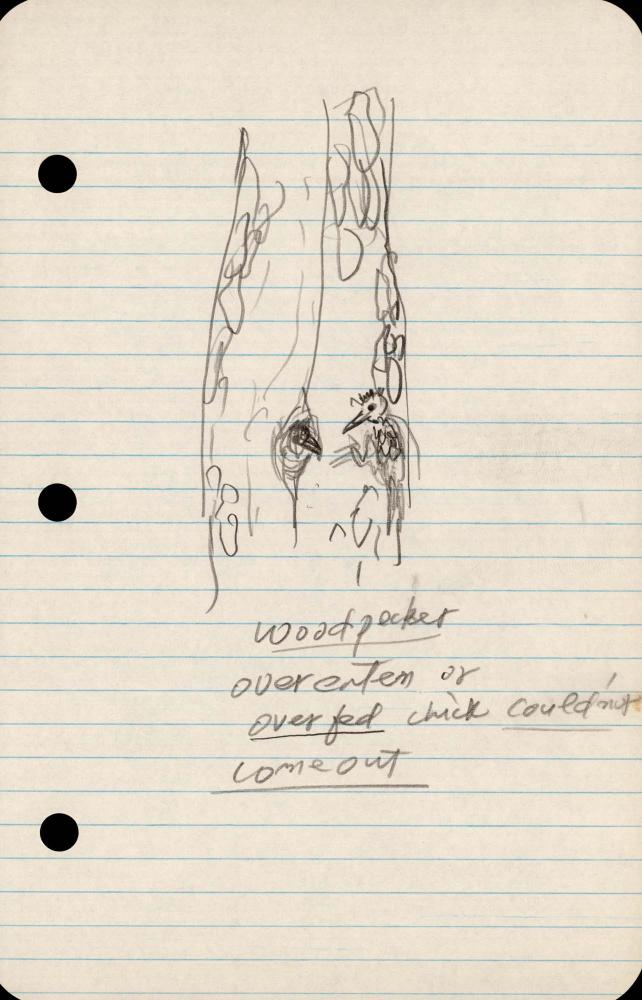 woodpecker
over eaten or
over fed chick could'nt
come out